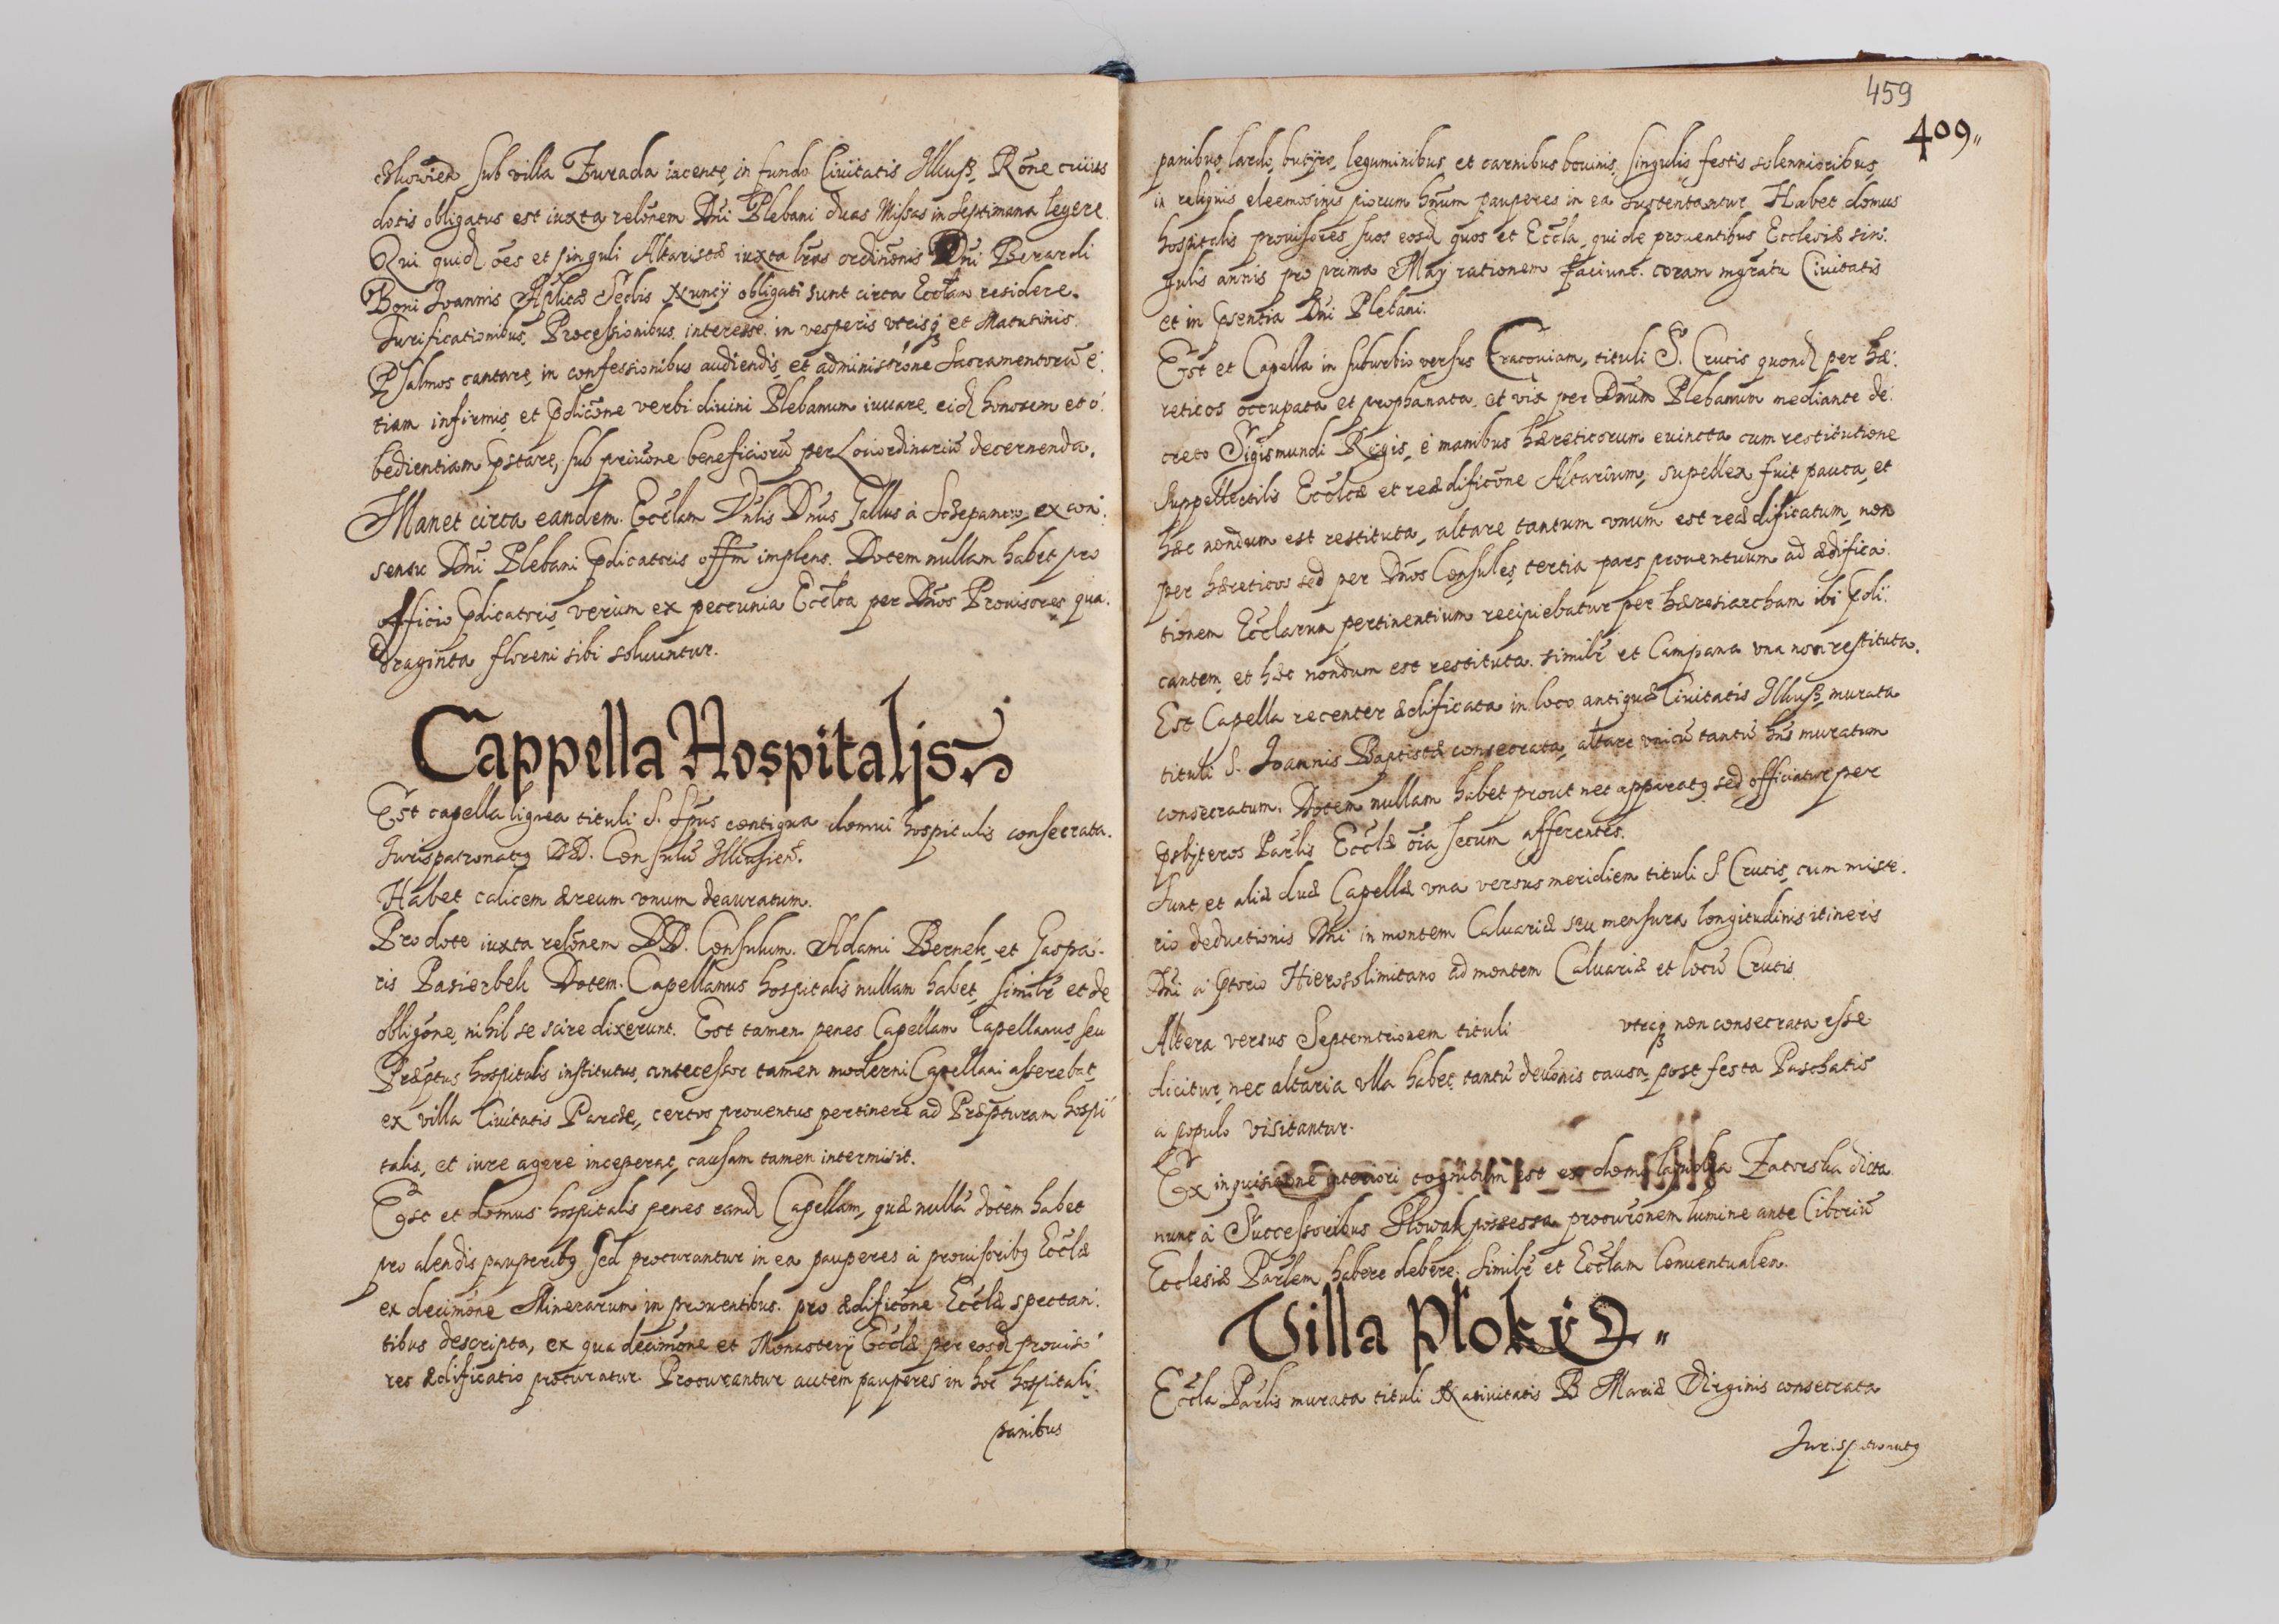 sub villa Zurada iacente, in fundo Ciuitatis Illuss, Rõne cuius
dotis obligatus est iuxta relõnem Dni Plebani duas Missas in Septimana legere.
Qui quid oẽs et singuli Altaristæ iuxta lras ordinõnis Dni Berardi
Boni Ioannis Aplicæ Sedis Nuncÿ obligati sunt circa Eccłam residere.
Turificationibus, Processionibus interesse. in vesperis vtrisq et Matutinis.
Psalmos cantare, in confessionibus audiendis, et administrõne Sacramentorũ e:
tiam infirmis, et pdicõne verbi diuini Plebanum iuuare, eid honorem et o:
bedientiam pstare, sub priuõne beneficiorũ per Lociordinariũ decernenda.
Manet circa eandem Eccłam Vnlis Dnus Gallus à Sczepanow, ex con:
sensu Dni Plebani pdicatoris offm implens. Dotem nullam habet pro
officio pdicatoris, verùm ex pecunia Eccłca per Dnos Prouisores qua:
draginta floreni sibi soluuntur.
Cappella Hospitalis
Est capella lignea tituli S. Spus contigua domui hospitalis consecrata.
Iurispatronatq DD. Consulũ Illcusień.
Habet calicem æreum vnum deauratum.
Pro dote iuxta relõnem DD. Consulum. Adami Bernek, et Gaspa:
ris Pasierbek Dotem Capellanus hospitalis nullam habet, similr et de
obligõne, nihil se scire dixerunt. Est tamen penes Capellam Capellanus, seu
Præptus hospitalis institutus, antecessor tamen moderni Capellani asserebat,
ex villa Ciuitatis Parcze, certos prouentus pertinere ad Præpturam hospi:
talis, et iure agere inceperat, causam tamen intermisit.
Est et domus hospitalis penes eand Capellam, quæ nullã dotem habet
pro alendis pauperibq sed procurantur in ea pauperes à prouisoribq Ecclæ
ex decimõne Minerarum in prouentibus. pro ædificõne Ecclæ spectan:
tibus descripta, ex qua decimõne et Monasterÿ Ecclæ per eosd prouiso:
res ædificatio procuratur. Procurantur autem pauperes in hoc hospitali
panibus
459
409,,
panibus, lardo, butÿro, leguminibus, et carnibus bouinis, singulis festis solennioribus,
in reliquis eleemosinis piorum hnum pauperes in ea sustentantur. Habet domus
hospitalis prouisores suos eosd quos et Eccla, qui de prouentibus Ecclesiæ sin:
gulis annis pro prima Maÿ rationem faciunt. coram mgratu Ciuitatis
et in psentia Dni Plebani.
Est et Capella in suburbio versus Cracouiam, tituli S. Crucis quond per hæ:
reticos occupata et prophanata, et vix per Dnum Plebanum mediante de:
creto Sigismundi Regis, è manibus hæreticorum euincta cum restitutione
suppellectilis Ecclcæ et reædificõne Altarium, supellex fuit pauca, et
hæc nondum est restituta, altare tantum vnum est reædificatum, non
per hæreticos sed per Dnos Consules, tertia pars prouentuum ad ædifica:
tionem Ecclarum pertinentium recipiebatur per hæresiarcham ibi pdi:
cantem, et hæc nondum est restituta. similr et Campana vna non restituta.
Est Capella recenter ædificata in loco antiquæ Ciuitatis Illuss, murata
tituli S. Ioannis Baptistæ consecrata, altare vnicũ tantũ hns muratum
consecratum. Dotem nullam habet prout nec apparatq sed officiatur per
psbÿteros Parlis Ecclæ oĩa secum afferentes.
Sunt et aliæ duæ Capellæ vna versus meridiem tituli S Crucis, cum miste:
rio deductionis Dni in montem Caluariæ seu mensura longitudinis itineris
Dni à ptorio Hierosolimitano ad montem Caluariæ et locũ Crucis
Altera versus Septemtrionem tituli vtraq non consecrata esse
dicitur, nec altaria vlla habet, tantũ deuõnis causa, post festa Paschatis
à populo visitantur.
Ex inquisitione interiori cognitum est ex domo lapidea Zatorska dicta
nunc à Successoribus Słowak possessa procurõnem lumine ante Ciboriũ
Ecclesiæ Parlem habere debere. similr et Ecclam Conuentualem.
Villa Ploky
Eccla Parlis murata tituli Natiuitatis B Mariæ Virginis consecrata
Iurispatronatq